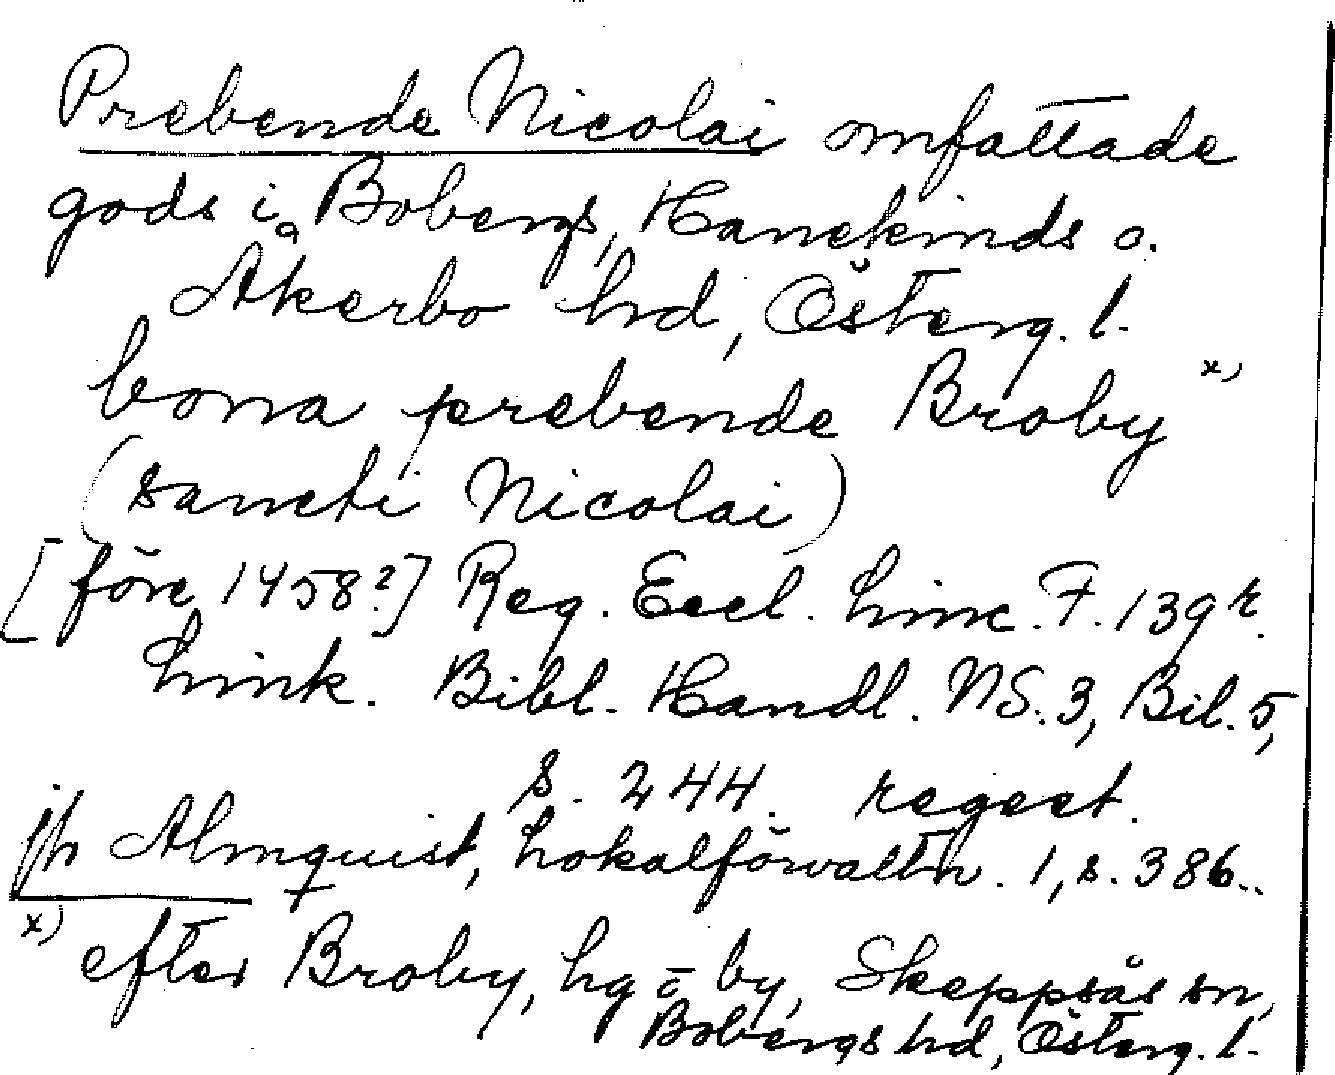 Prebende Nicolai omfattade
gods i Bobergs, Hanekinds o.
Åkerbo hd, Österg. l.
bona prebende Broby x)
(sancti Nicolai)
[före 1458?] Reg. Eccl. Linc. F. 139 r.
Link. Bibl. Handl. NS. 3, Bil. 5,
s. 244. regest.
jfr Almquist, Lokalförvaltn. 1, s. 386..
x) efter Broby, hg = by, Skeppsås sn,
Bobergs hd, Österg. l.